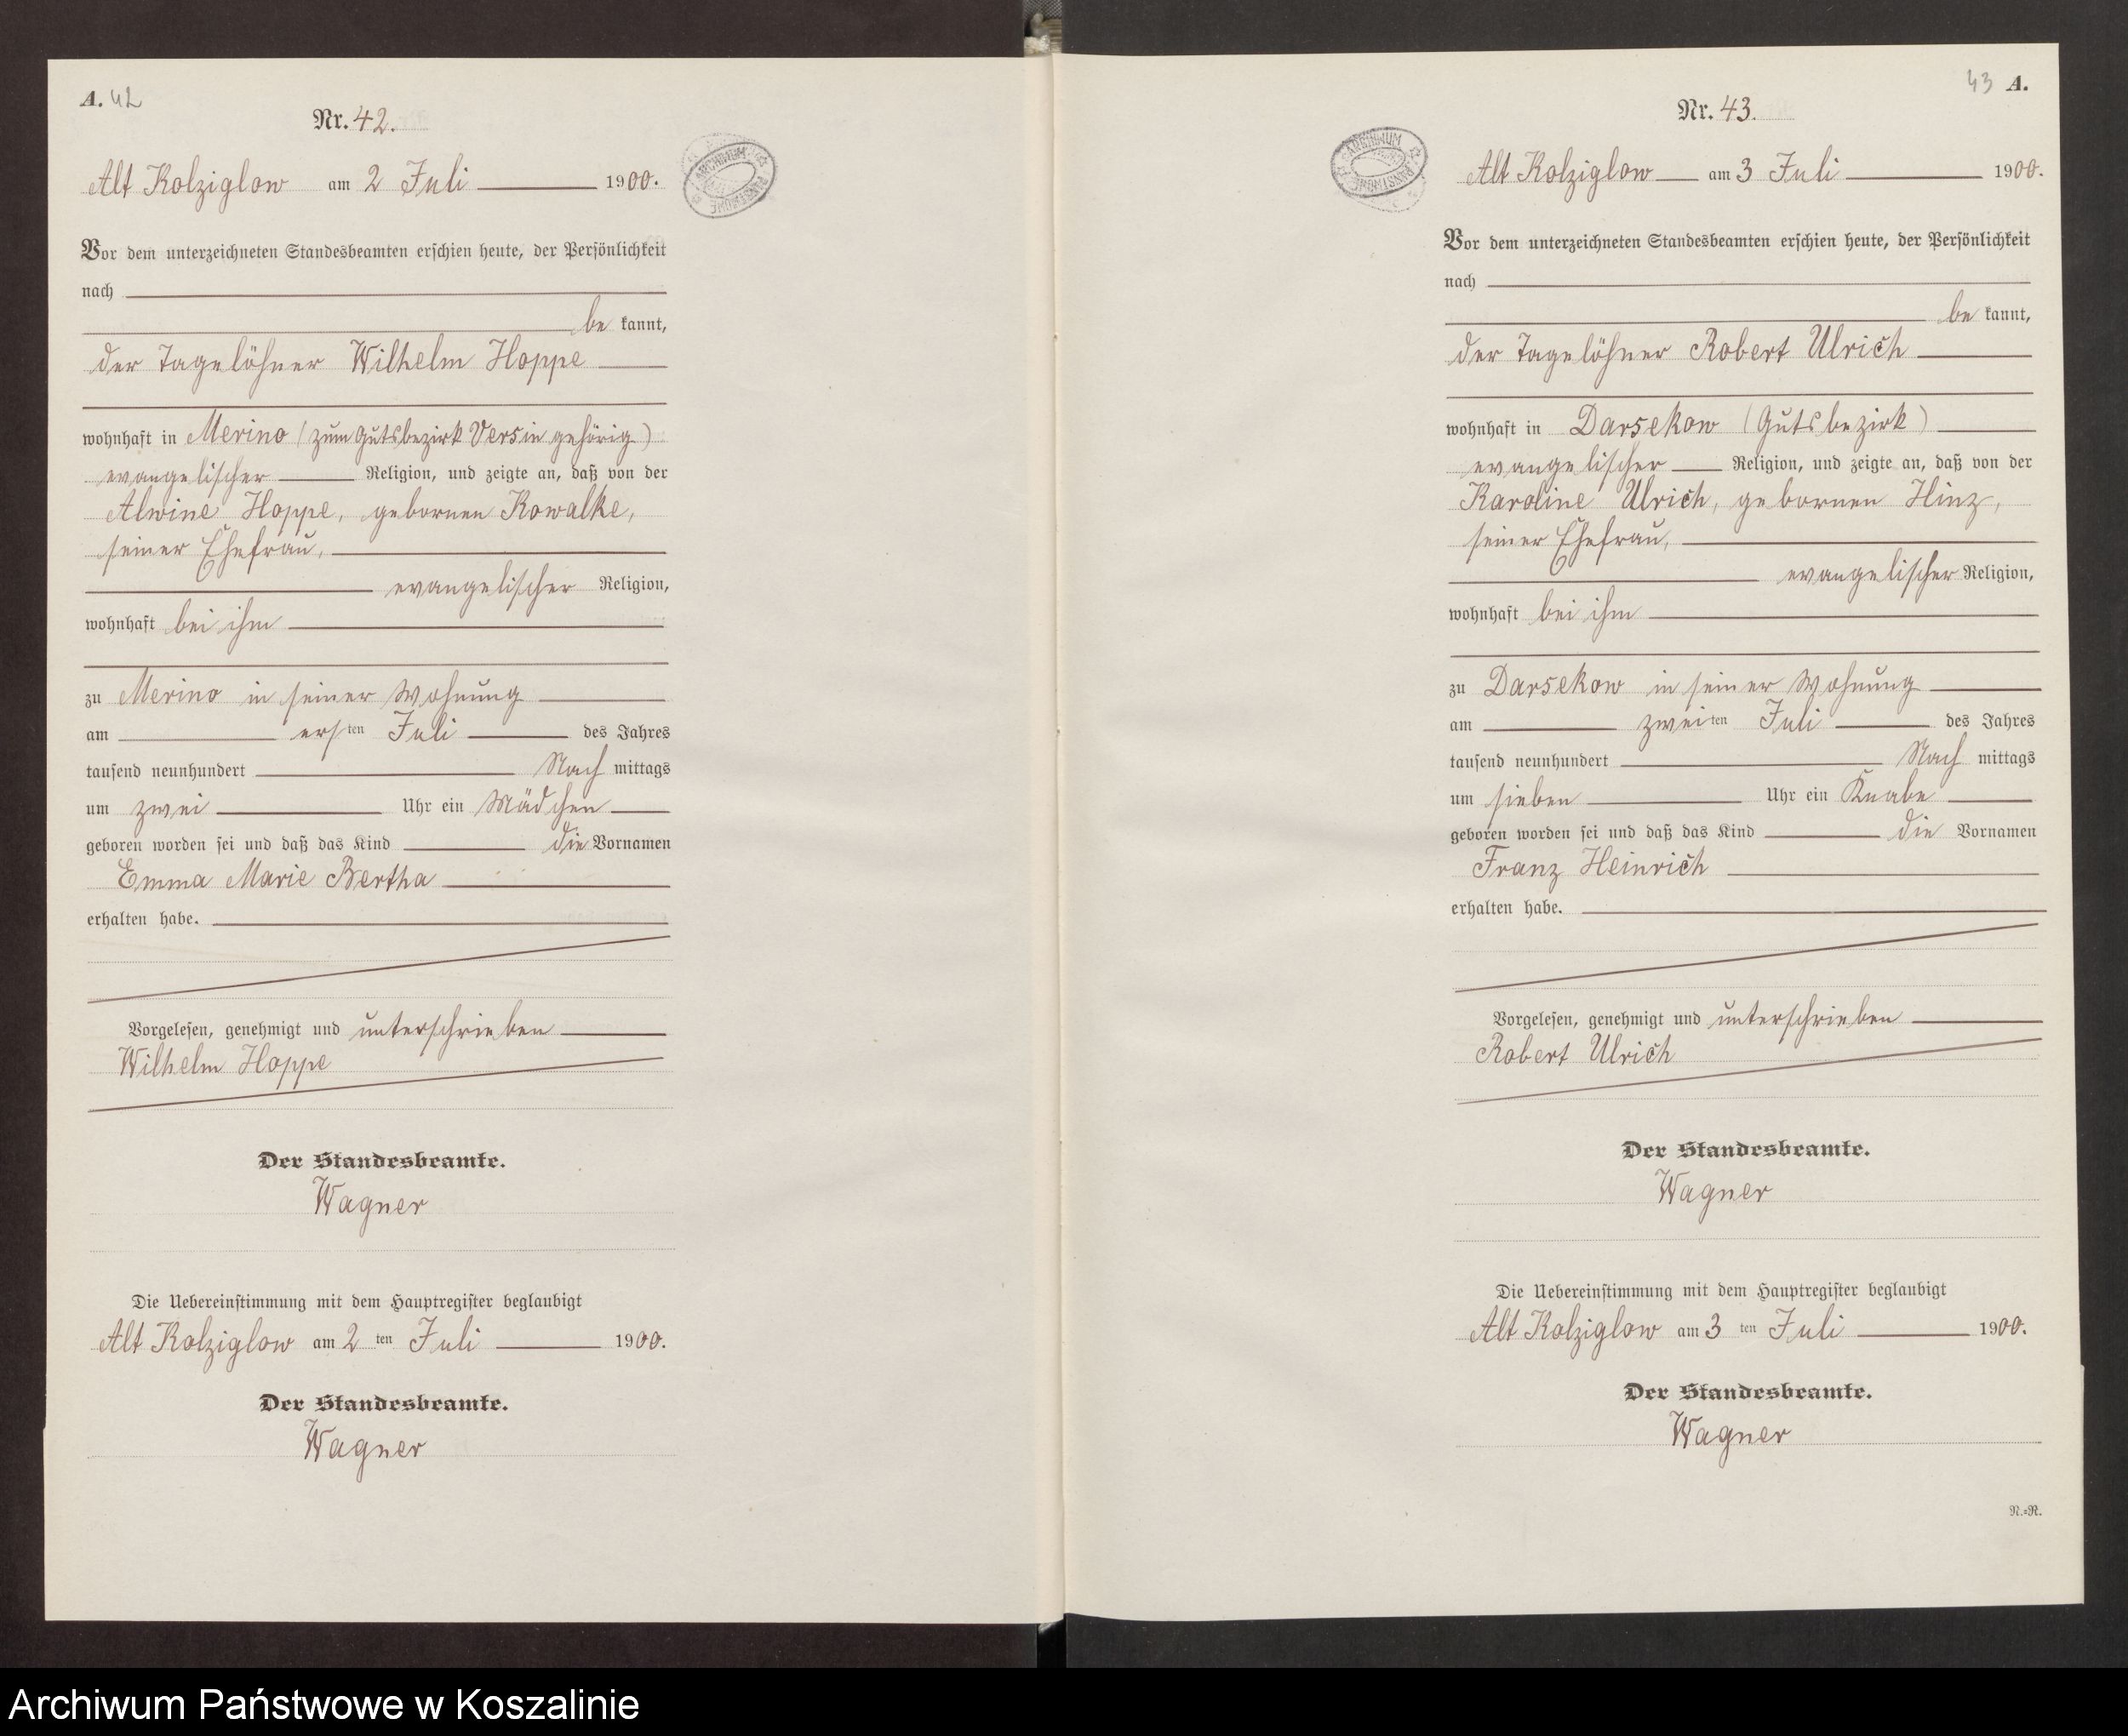 A. 42
Nr. 42.
Alt Kolziglow am 2 Juli 1900.
Vor dem unterzeichneten Standesbeamten erschien heute, der Persönlichkeit
nach
be kannt,
der Tagelöhner Wilhelm Hoppe
wohnhaft in Merino (zum Gutsbezirk Versin gehörig)
evangelischer Religion, und zeigte an, daß von der
Alwine Hoppe, gebornen Kowalke,
seiner Ehefrau,
evangelischer Religion,
wohnhaft bei ihm
zu Merino in seiner Wohnung
am ersten Juli des Jahres
tausend neunhundert Nach mittags
um zwei Uhr ein Mädchen
geboren worden sei und daß das Kind die Vornamen
Emma Marie Bertha
erhalten habe.
Vorgelesen, genehmigt und unterschrieben
Wilhelm Hoppe
Der Standesbeamte.
Wagner
Die Uebereinstimmung mit dem Hauptregister beglaubigt
Alt Kolziglow am 2 ten Juli 1900.
Der Standesbeamte.
Wagner
43 A.
Nr. 43.
Alt Kolziglow am 3 Juli 1900.
Vor dem unterzeichneten Standesbeamten erschien heute, der Persönlichkeit
nach
be kannt,
der Tagelöhner Robert Ulrich
wohnhaft in Darsekow (Gutsbezirk)
evangelischer Religion, und zeigte an, daß von der
Karoline Ulrich, gebornen Hinz,
seiner Ehefrau,
evangelischer Religion,
wohnhaft bei ihm
zu Darsekow in seiner Wohnung
am zweiten Juli des Jahres
tausend neunhundert Nach mittags
um sieben Uhr ein Knabe
geboren worden sei und daß das Kind die Vornamen
Franz Heinrich
erhalten habe.
Vorgelesen, genehmigt und unterschrieben
Robert Ulrich
Der Standesbeamte.
Wagner
Die Uebereinstimmung mit dem Hauptregister beglaubigt
Alt Kolziglow am 3 ten Juli 1900.
Der Standesbeamte.
Wagner
N.=R.
Archiwum Państwowe w Koszalinie